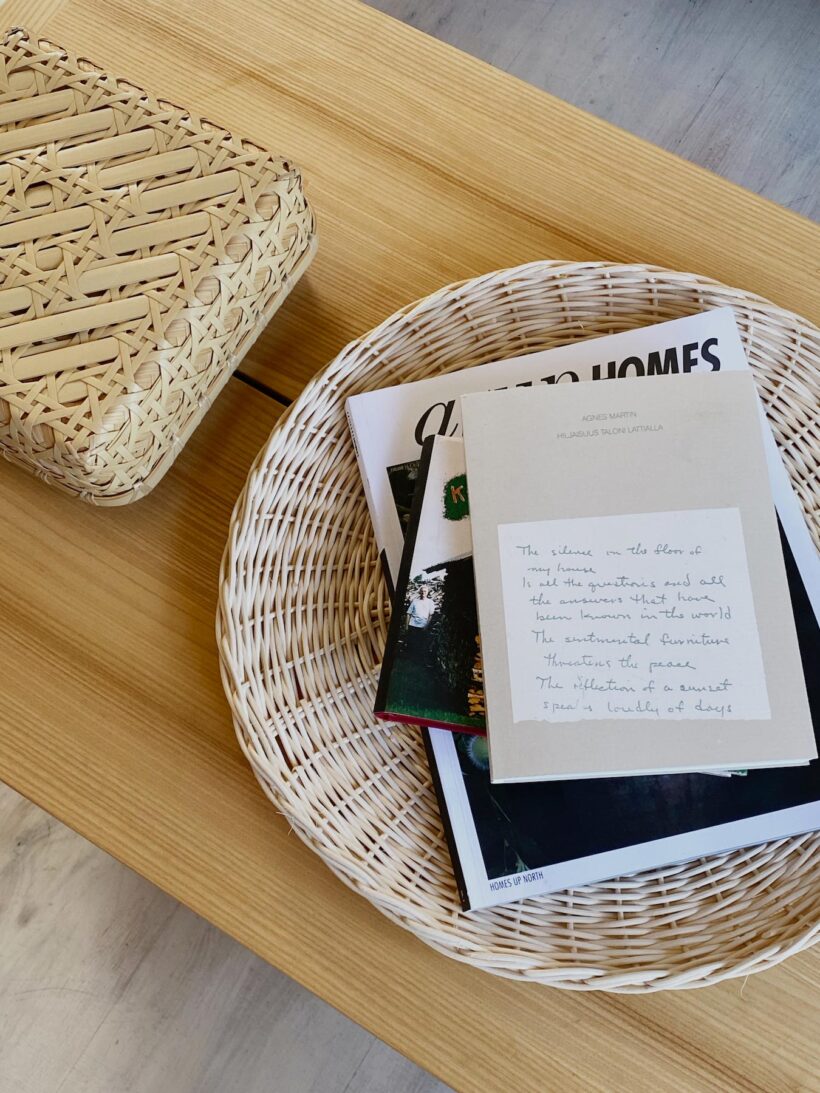 HOMES
AGNES MARTIN
HILJAISUUS TALONI LATTIALLA
K
The silence on the floor of
my house
Is all the questions and all
the answers that have
been known in the world
The sentimental furniture
threatens the peace
The reflection of a sunset
speaks loudly of days
HOMES UP NORTH